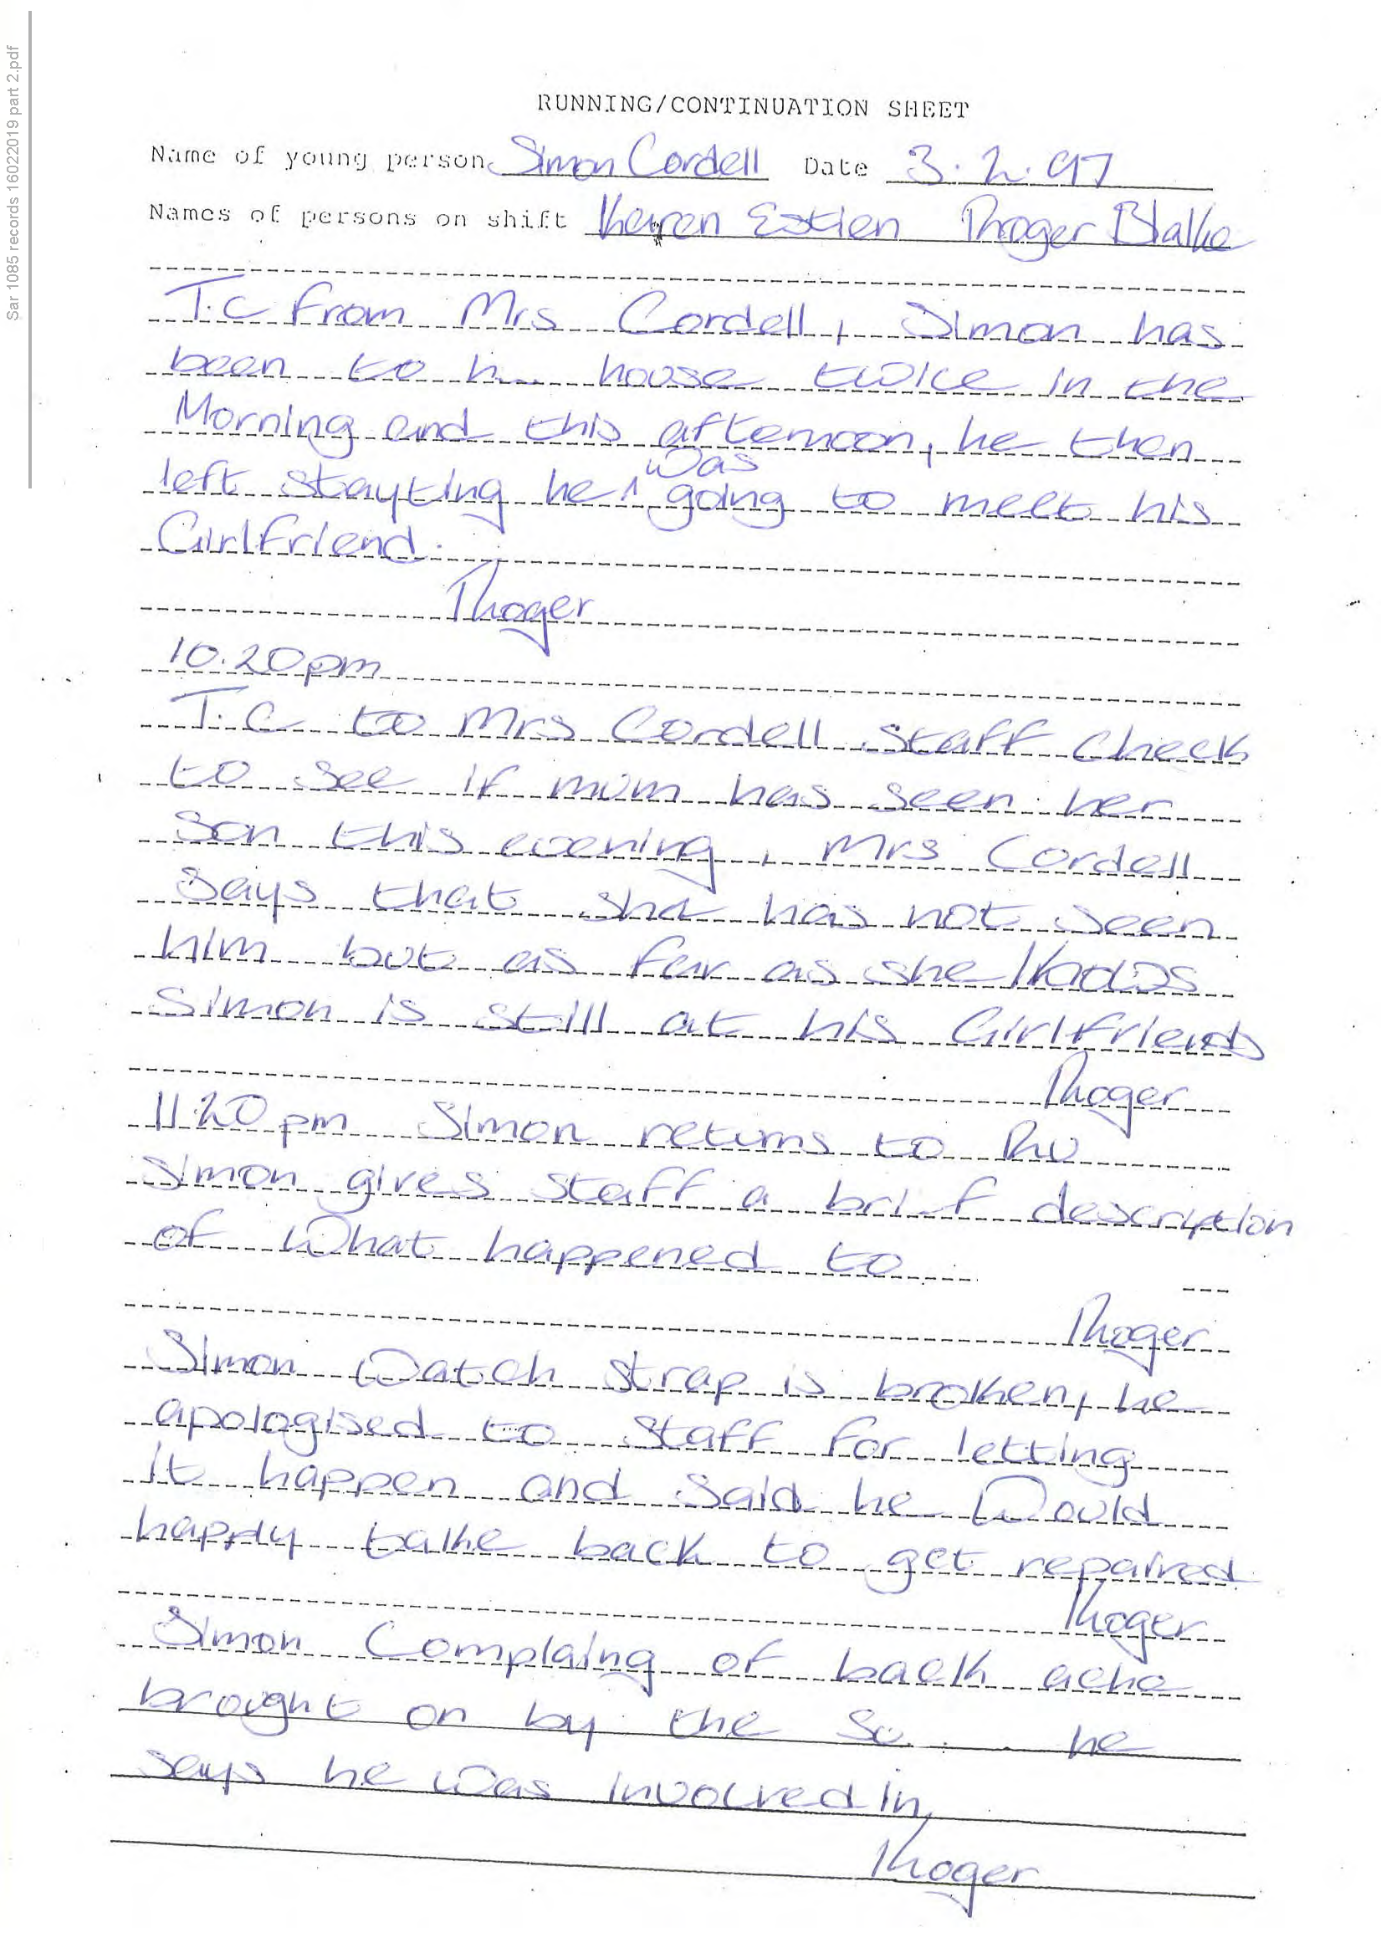 Sar 1085 records 16022019 part 2.pdf
RUNNING/CONTINUATION SHEET
Name of young person Simon Cordell Date 3.2.97
Names of persons on shift Karen Estien Rhoger Blake
T.C from Mrs Cordell, Simon has
been to h house twice in the
Morning and this afternoon, he then
left stayting he was going to meet his
Girlfriend.
Rhoger
10.20pm
T.C to Mrs Cordell staff check
to see if mum has seen her
son this evening, Mrs Cordell
says that she has not seen
him but as far as she knows
Simon is still at his Girlfriends
Rhoger
11.20pm Simon returns to
Simon gives staff a brief description
of what happened to
Rhoger
Simon Watch strap is broken, he
apologised to staff for letting
it happen and said he would
happly take back to get repaired
Rhoger
Simon Complaing of back ache
brought on by the he
says he was involved in,
Rhoger